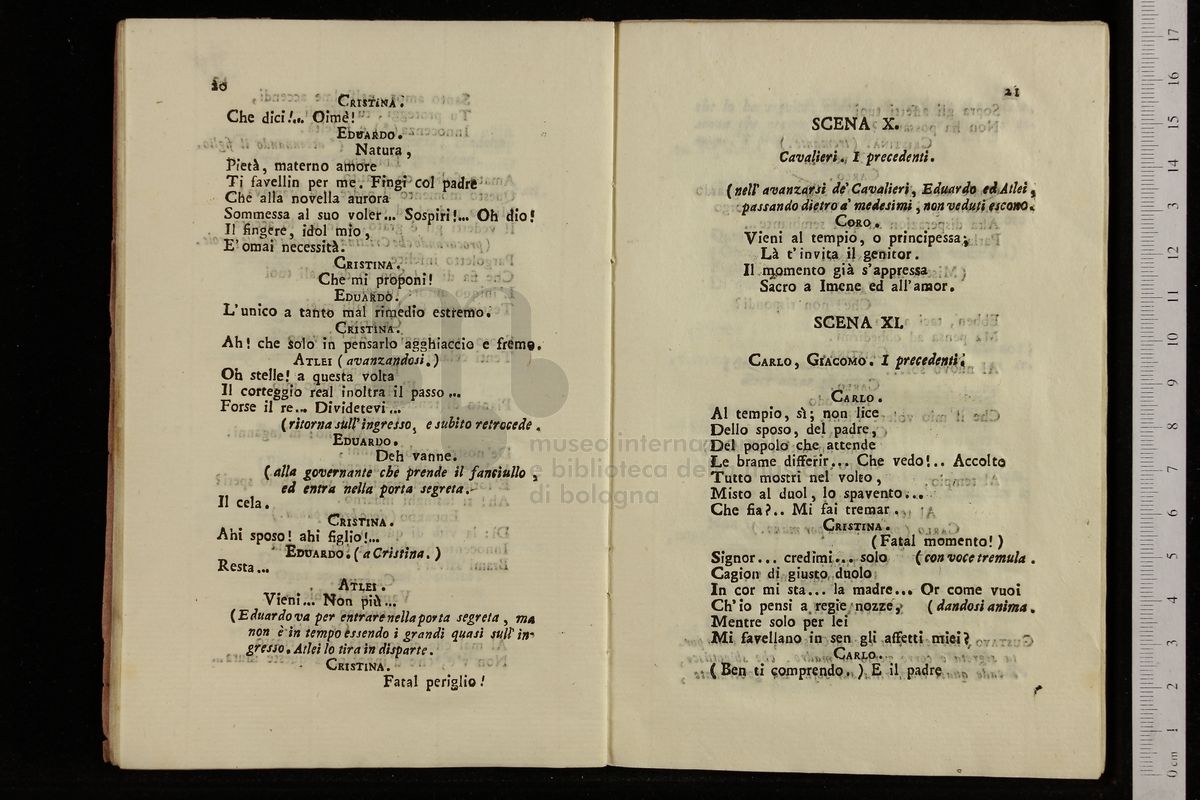 20
CRISTINA.
Che dici!... Oimè!
EDUARDO.
Natura,
Pietà, materno amore
Ti favellin per me. Fingi col padre
Che alla novella aurora
Sommessa al suo voler... Sospiri!... Oh dio!
Il fingere, idol mio,
E' omai necessità.
CRISTINA.
Che mi proponi!
EDUARDO.
L'unico a tanto mal rimedio estremo.
CRISTINA.
Ah! che solo in pensarlo agghiaccio e fremo.
ATLEI (avanzandosi.)
Oh stelle! a questa volta
Il corteggio real inoltra il passo...
Forse il re... Dividetevi...
(ritorna sull'ingresso, e subito retrocede.
EDUARDO.
Deh vanne.
(alla governante che prende il fanciullo,
ed entra nella porta segreta.
Il cela.
CRISTINA.
Ahi sposo! ahi figlio!...
EDUARDO. (a Cristina.)
Resta...
ATLEI.
Vieni... Non più...
(Eduardo va per entrare nella porta segreta, ma
non è in tempo essendo i grandi quasi sull'in-
gresso. Atlei lo tira in disparte.
CRISTINA.
Fatal periglio!
21
SCENA X.
Cavalieri. I precedenti.
(nell'avanzarsi de' Cavalieri, Eduardo ed Atlei,
passando dietro a' medesimi, non veduti escono.
CORO.
Vieni al tempio, o principessa;
Là t'invita il genitor.
Il momento già s'appressa
Sacro a Imene ed all'amor.
SCENA XI.
CARLO, GIACOMO. I precedenti.
CARLO.
Al tempio, sì; non lice
Dello sposo, del padre,
Del popolo che attende
Le brame differir... Che vedo!.. Accolto
Tutto mostri nel volto,
Misto al duol, lo spavento...
Che fia?.. Mi fai tremar.
CRISTINA.
(Fatal momento!)
Signor... credimi... solo (con voce tremula.
Cagion di giusto duolo
In cor mi sta... la madre... Or come vuoi
Ch'io pensi a regie nozze, (dandosi anima.
Mentre solo per lei
Mi favellano in sen gli affetti miei?
CARLO.
(Ben ti comprendo.) E il padre
museo interna
e biblioteca de
di bologna
0 cm 1 2 3 4 5 6 7 8 9 10 11 12 13 14 15 16 17